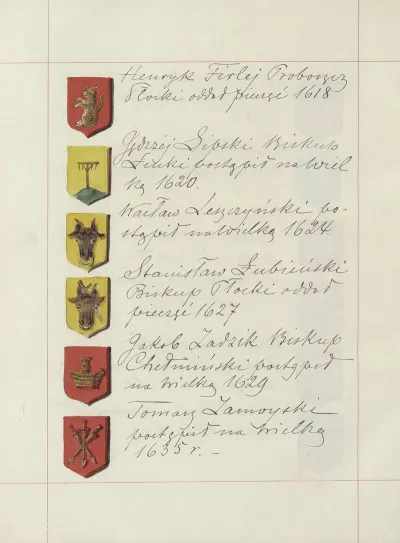 Henryk Firlej Proboszcz
Płocki oddał pieczęć 1618
Jędrzej Lipski Biskup
Łucki postąpił na wiel
ką 1620.
Wacław Leszczyński po-
stąpił na wielką 1624
Stanisław Łubieński
Biskup Płocki oddał
pieczęć 1627
Jakób Zadzik Biskup
Chełmiński postąpił
na wielką 1629
Tomasz Zamoyski
postąpił na wielką
1635 r. –